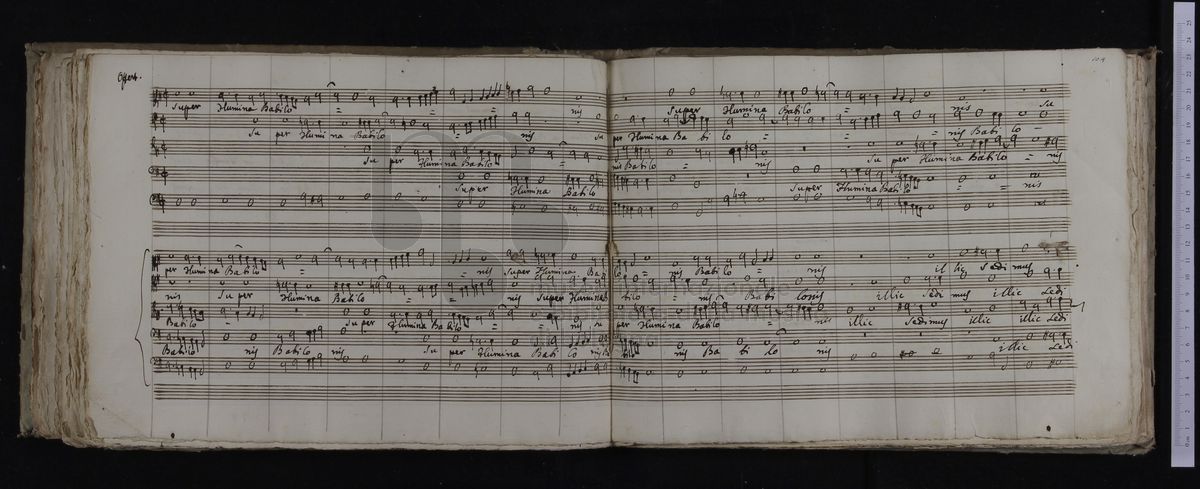 Offert.
Super flumina Babilo = = nis Super flumina Babilo = nis Su
Su per flumina Babilo = nis su per flumina Ba bi lo = = = nis Babi lo
Su per flumina Babilo = nis Babilo = nis Su per flumina Babilo = nis
Super flumina Babilo Super flumina Babilo = = nis
per flumina Babilo = = nis Super flumina Ba lo = nis Babilo = nis il lic Sedimus
nis Super flumina Babilo = = nis Super flumina bilo = nis Babi lonis illic Sedi mus illic Sedi
Babilo = Super flumina Babilo = = nis su per flumina Babilo = nis illic Sedimus illic illic Sedi
Babilo nis Babilo nis Su per flumina Babi lo nis nis Ba bi lo nis illic Sedi